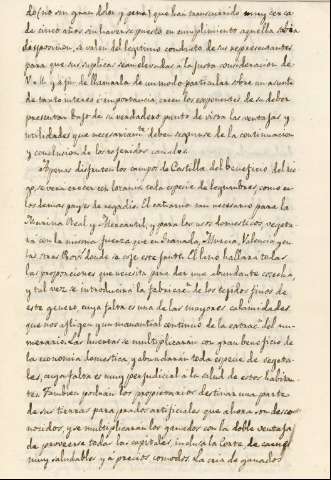 do (no sin gran dolor y pena) que han transcurrido muy cerca
de cinco años sin haverse puesto en cumplimiento aquella sabia
disposicion, se valen del legitimo conducto de sus representantes
para que sus suplicas sean elevadas a la justa consideracion de
V.M. y a fin de llamarla de un modo particular sobre un asunto
de tanto interes e importancia, creen los exponentes de su deber
presentar bajo de su verdadero punto de vista las ventajas y
utilidades que necesariam.te deben seguirse de la continuacion
y conclusion de los referidos canales.
Apenas disfruten los campos de Castilla del beneficio del rie-
go, se veran crecer con lozania toda especie de legumbres como en
los demas payses de regadio. El cañamo tan necesario para la
Marina Real y Mercantil, y para los usos domesticos, vegeta-
rá con la misma fuerza que en Granada, Murcia, Valencia y en
las otras Prov.s donde se coje este fruto. El lino hallará todas
las proporciones que necesita para dar una abundante cosecha
y tal vez se introducirá la fabricac.n de los tejidos finos de
este genero, cuya falta es una de las mayores calamidades
que nos afligen y un manantial continuo de la extrac.n del nu-
merario. Las huertas se multiplicarán con gran beneficio de
la economia domestica y abundarán toda especie de vegeta-
les, cuya falta es muy perjudicial a la salud de estos habitan-
tes. Tambien podrán los propietarios destinar una parte
de sus tierras para prados artificiales que ahora son desco-
nocidos, y se multiplicarán los ganados con la doble ventaja
de proveerse todas las capitales, inclusa la Corte, de carnes
muy saludables y á precios comodos. La cria de ganados